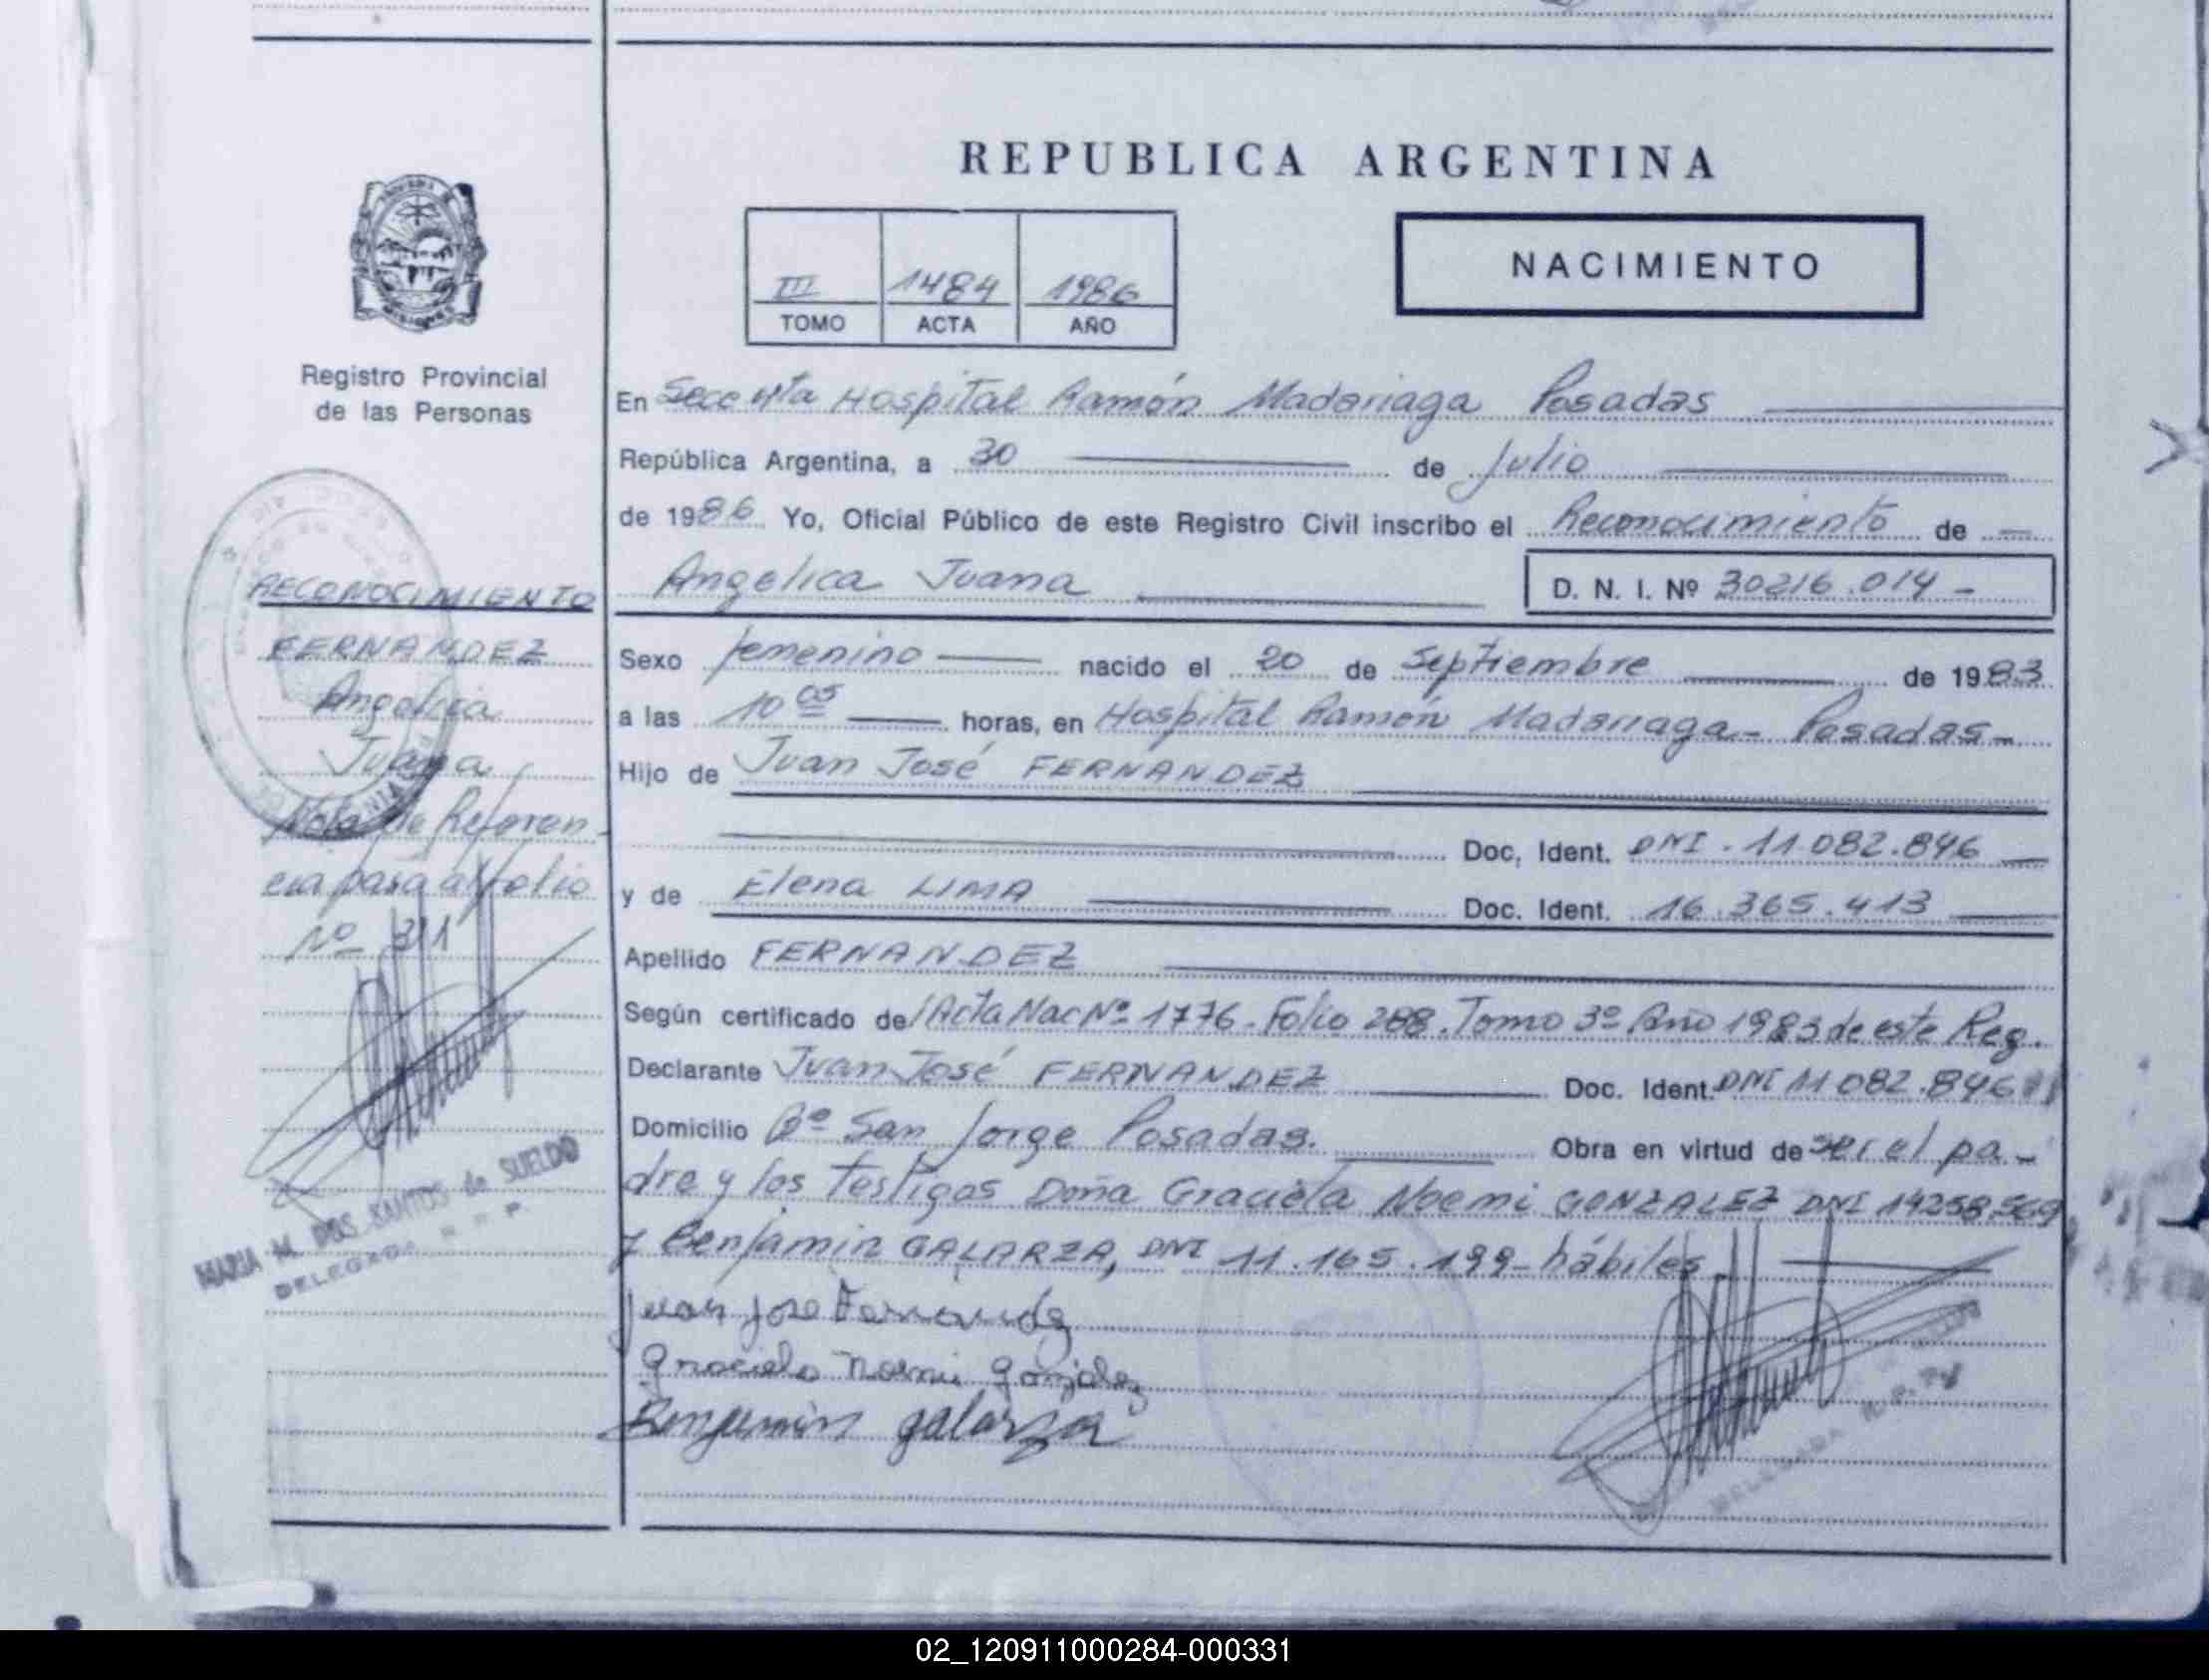 REPUBLICA ARGENTINA
III 1484 1986
TOMO ACTA AÑO
NACIMIENTO
Registro Provincial
de las Personas
En Secc 4ta Hospital Ramón Madariaga Posadas
República Argentina, a 30 de Julio
de 1986 Yo, Oficial Público de este Registro Civil inscribo el Reconocimiento de —
Angelica Juana D. N. I. Nº 30216.014 -
Sexo femenino nacido el 20 de Septiembre de 1983
a las 10 05 horas, en Hospital Ramón Madariaga - Posadas -
Hijo de Juan José FERNANDEZ
Doc. Ident. DNI . 11.082.846
y de Elena LIMA Doc. Ident. 16.365.413
Apellido FERNANDEZ
Según certificado de/Acta Nac Nº 1776 - Folio 288 . Tomo 3º Año 1983 de este Reg.
Declarante Juan José FERNANDEZ Doc. Ident. DNI 11 082.846
Domicilio Bº San Jorge Posadas. Obra en virtud de ser el pa-
dre y los testigos Doña Graciela Noemi GONZALEZ DNI 14258.569
y Benjamin GALARZA, DNI 11.165.199 - hábiles
Juan Jose Fernandez
Graciela Noemi Gonzalez
Benjamin galarza
RECONOCIMIENTO
FERNANDEZ
Angelica
Juana
Nota de Referen-
cia pasa al folio
Nº 311
MARIA M. DOS SANTOS de SUELDO
DELEGADA R. R. P.
DELEGADA
02_120911000284-000331